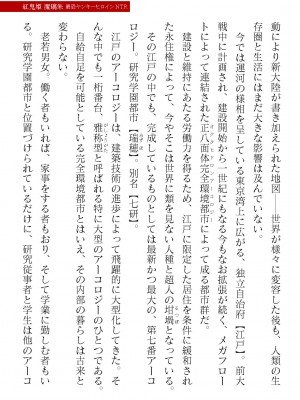 紅鬼姫 瑠璃珠 敏感ヤンキーヒロインNTR
動により新大陸が書き加えられた地図――世界が様々に変容した後も、人類の生
存圏と生活にはまだ大きな影響は及んでいない。
今では運河の様相を呈している東京湾上に広がる、独立自治府【江戸】。前大
戦中に計画され、建設開始から一世紀にもなる今もなお拡張が続く、メガフロー
トによって連結された正八面体完全環境都市によって成る都市群だ。
建設と維持にあたる労働力を得るため、江戸に限定した居住条件に緩和され
た永住権によって、今やそこは世界に類を見ない人種と超人の坩堝となっている。
その江戸の中でも、完成しているものとしては最新かつ最大の、第七番アーコ
ロジー。研究学園都市【瑞穂】、別名【七研】。
江戸のアーコロジーは、建築技術の進歩によって飛躍的に大型化してきた。そ
んな中でも、桁番台・雅称型と呼ばれる特に大型のアーコロジーのひとつである。
自給自足を可能としている完全環境都市とはいえ、その内部の暮らしは古来と
変わらない。
老若男女。働く者もいれば、家事をする者もおり、そして学業に勤しむ者もい
る。研究学園都市と位置づけられているだけに、研究従事者と学生は他のアーコ